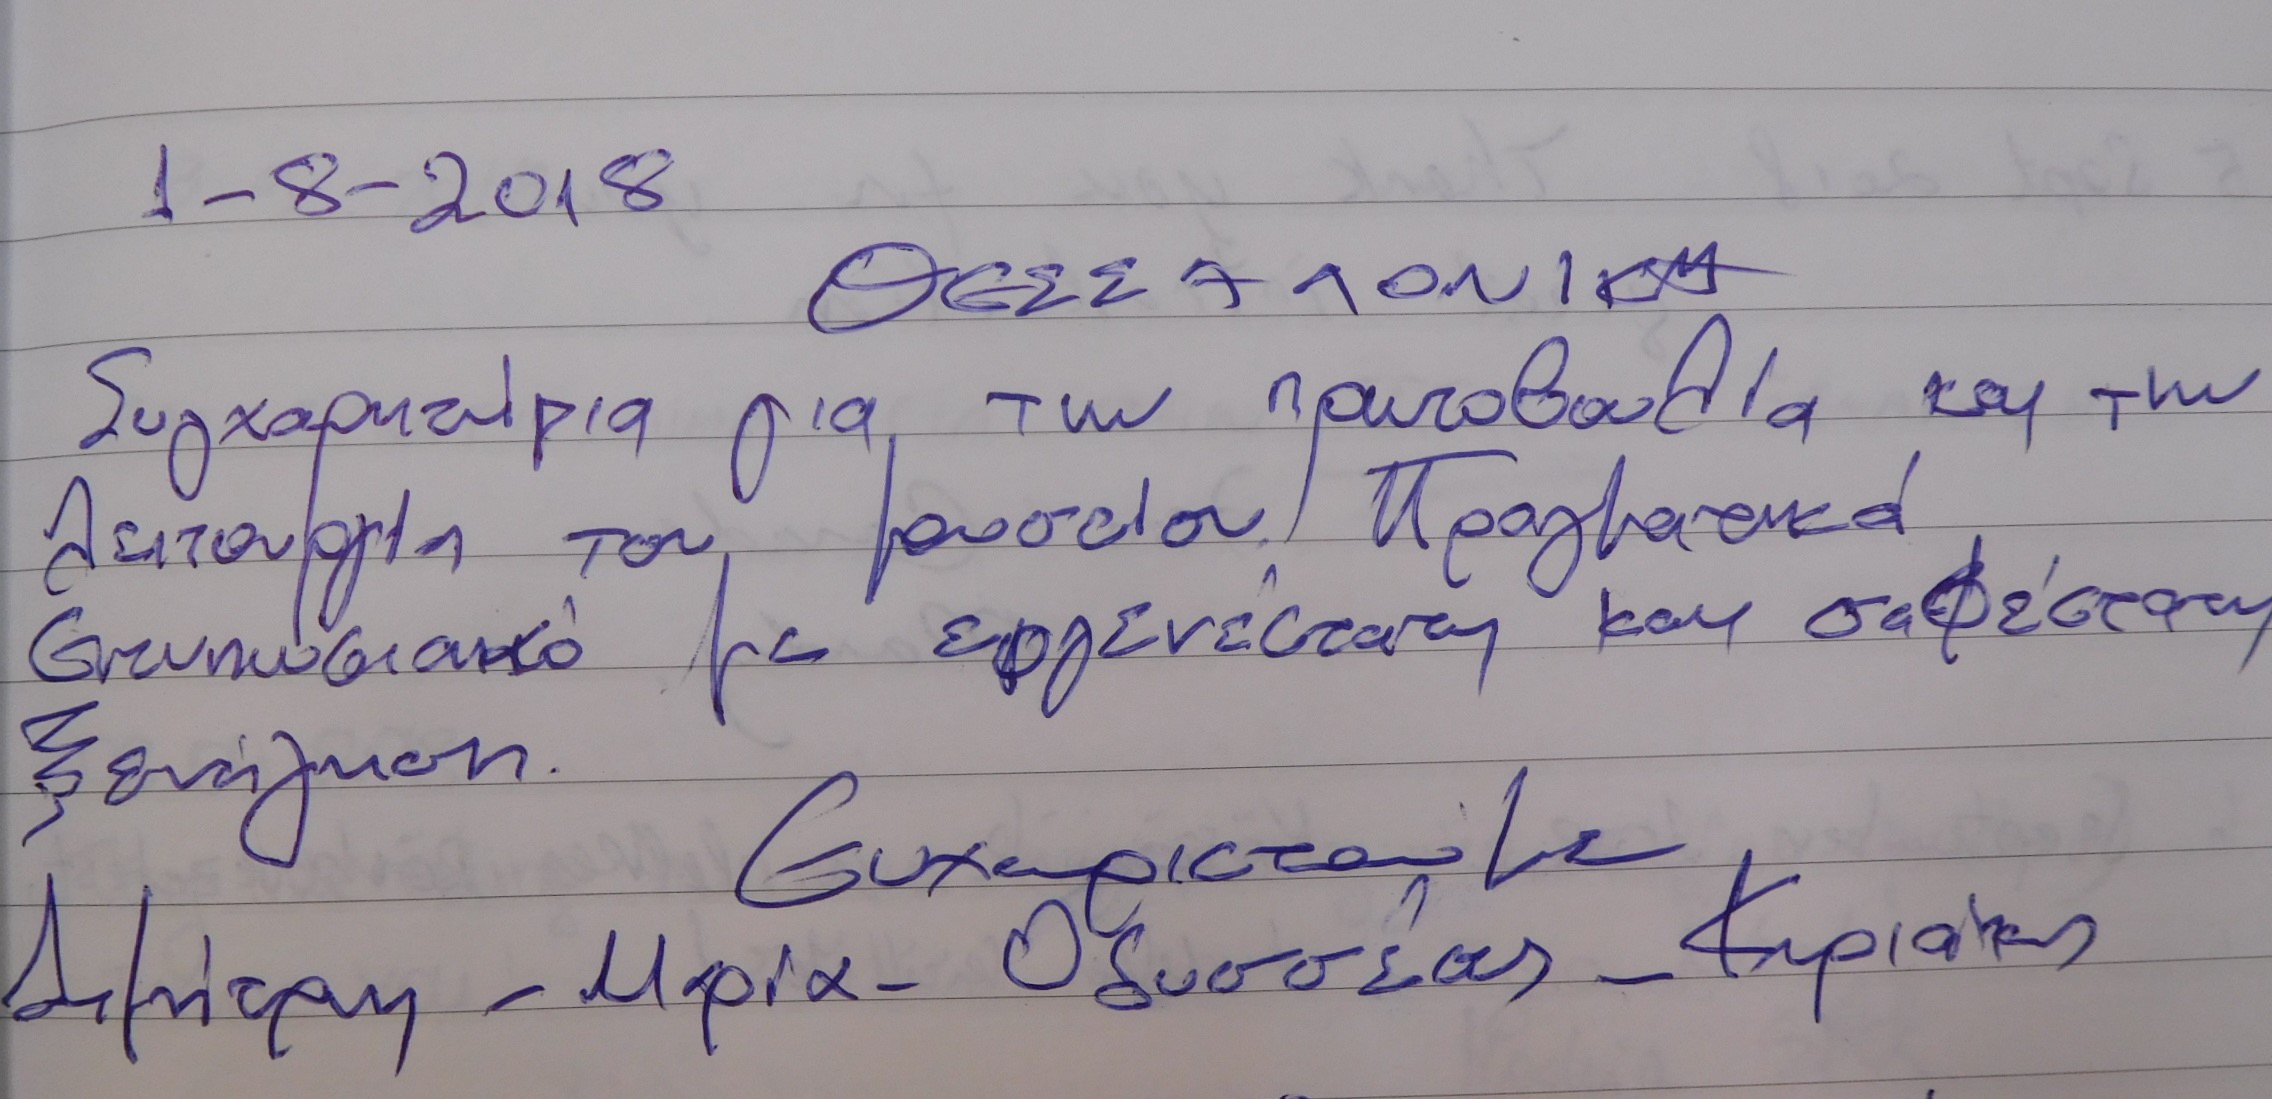 1-8-2018
ΘΕΣΣΑΛΟΝΙΚΗ
Συγχαρητήρια για την πρωτοβουλία και την
λειτουργία του μουσείου. Πραγματικά
Εντυπωσιακό με ευγενέσταση και σαφέσταση
ξενάγηση.
Ευχαριστούμε
Δημήτρης - Μαρία - Οδυσσέας - Κυριάκος